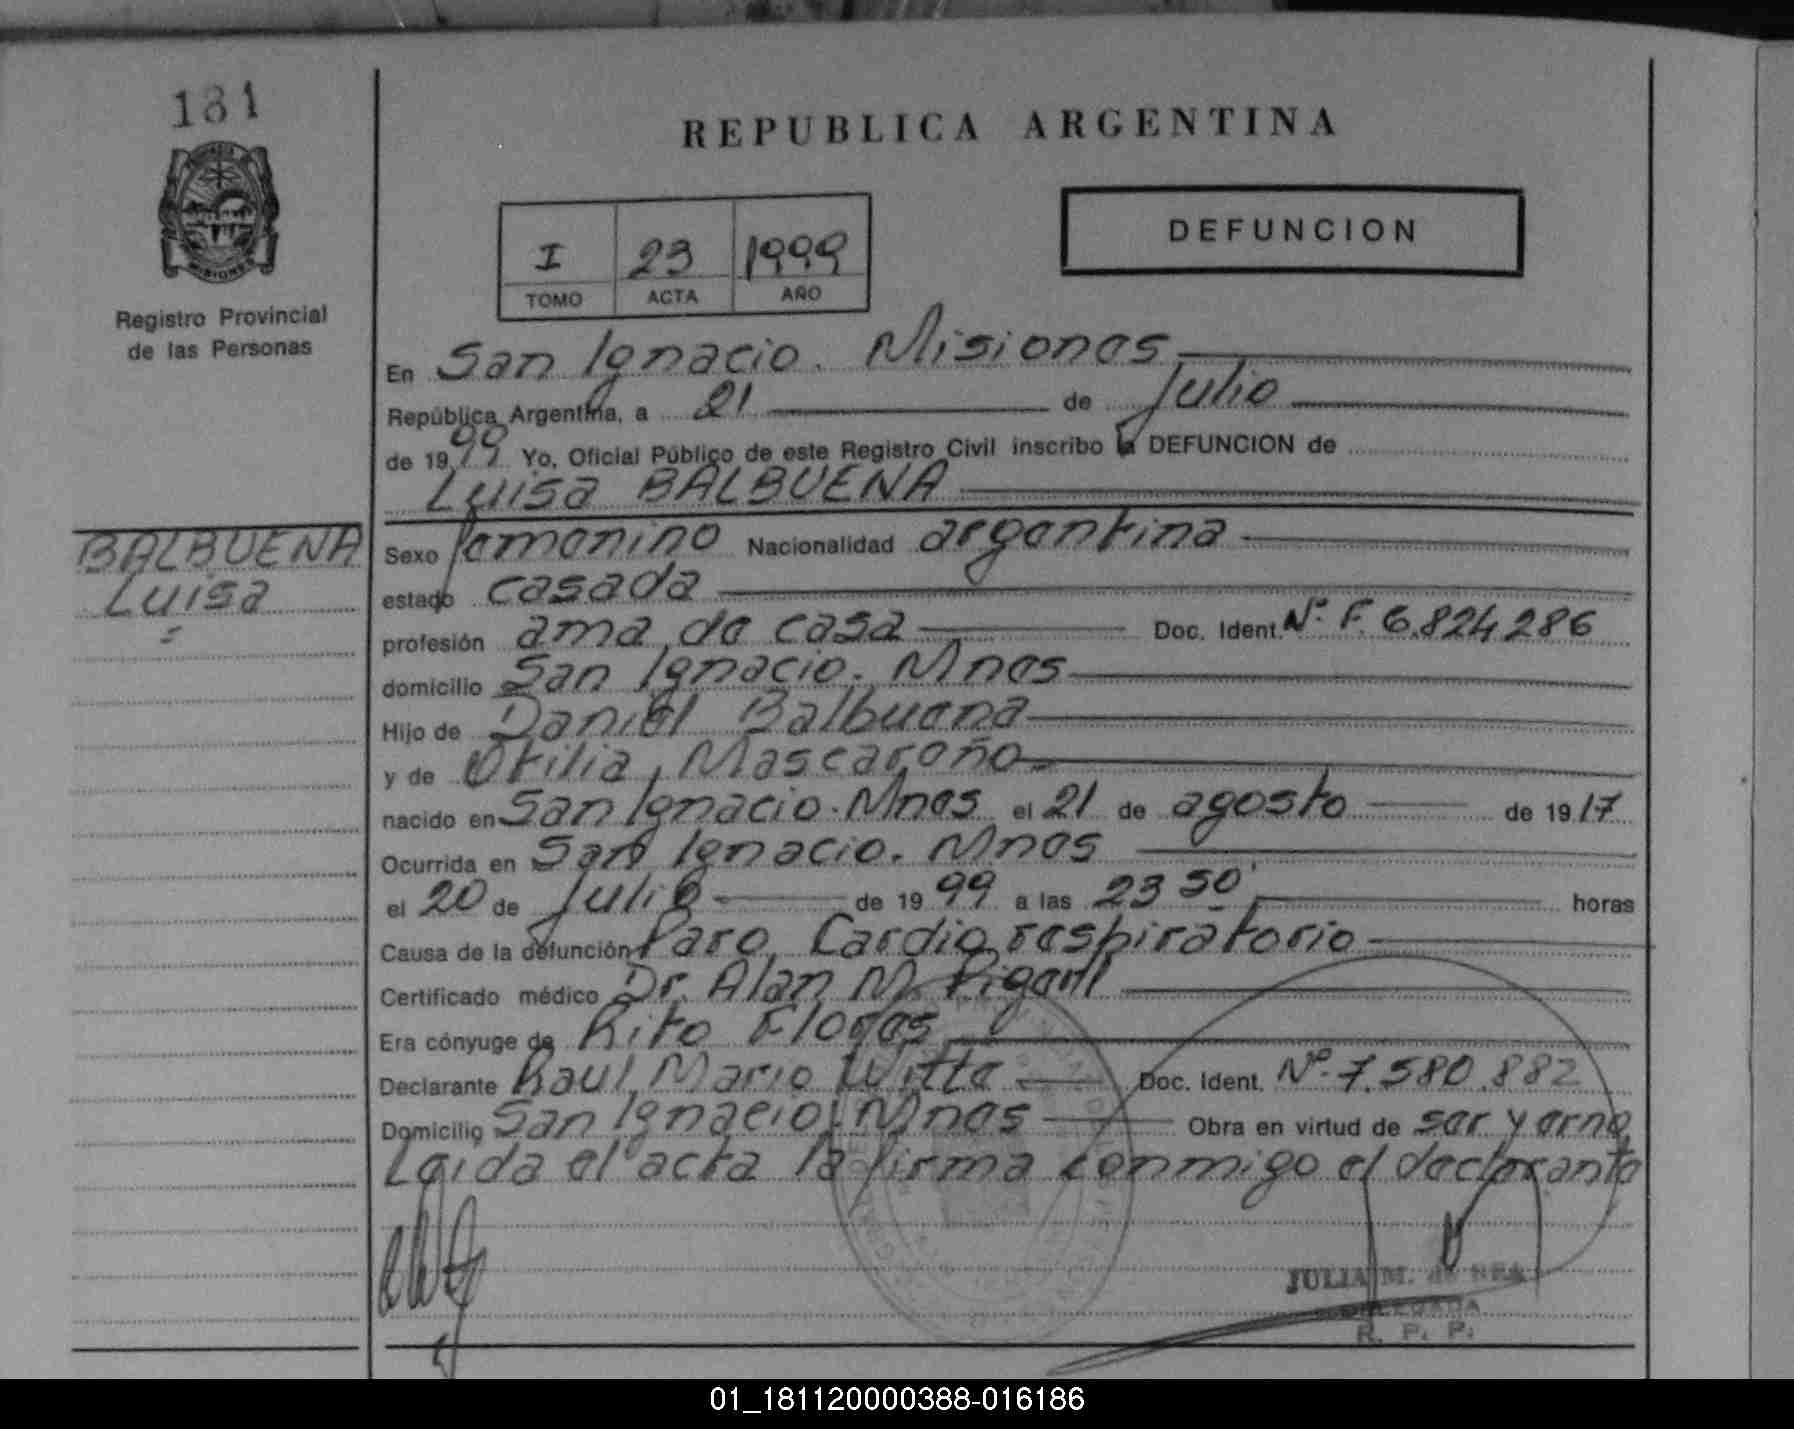 181
REPUBLICA ARGENTINA
MISIONES
Registro Provincial
de las Personas
I 23 1999
TOMO ACTA AÑO
DEFUNCION
En San Ignacio. Misiones
República Argentina, a 21 de Julio
de 1999 Yo, Oficial Público de este Registro Civil inscribo la DEFUNCION de
Luisa BALBUENA
BALBUENA
Luisa
Sexo femenino Nacionalidad argentina
estado casada
profesión ama de casa Doc. Ident. Nº F. 6.824.286
domicilio San Ignacio. Mnes
Hijo de Daniel Balbuena
y de Otilia Mascareño
nacido en San Ignacio. Mnes el 21 de agosto de 1917
Ocurrida en San Ignacio. Mnes
el 20 de Julio de 1999 a las 23 50' horas
Causa de la defunción Paro Cardio respiratorio
Certificado médico Dr. Alan M.
Era cónyuge de Rito Flores
Declarante Raul Mario Witte Doc. Ident. Nº 7.580.882
Domicilio San Ignacio. Mnes Obra en virtud de ser yerno
Leida el acta la firma conmigo el declarante
JULIA M. de
DELEGADA
R. P. P.
01_181120000388-016186